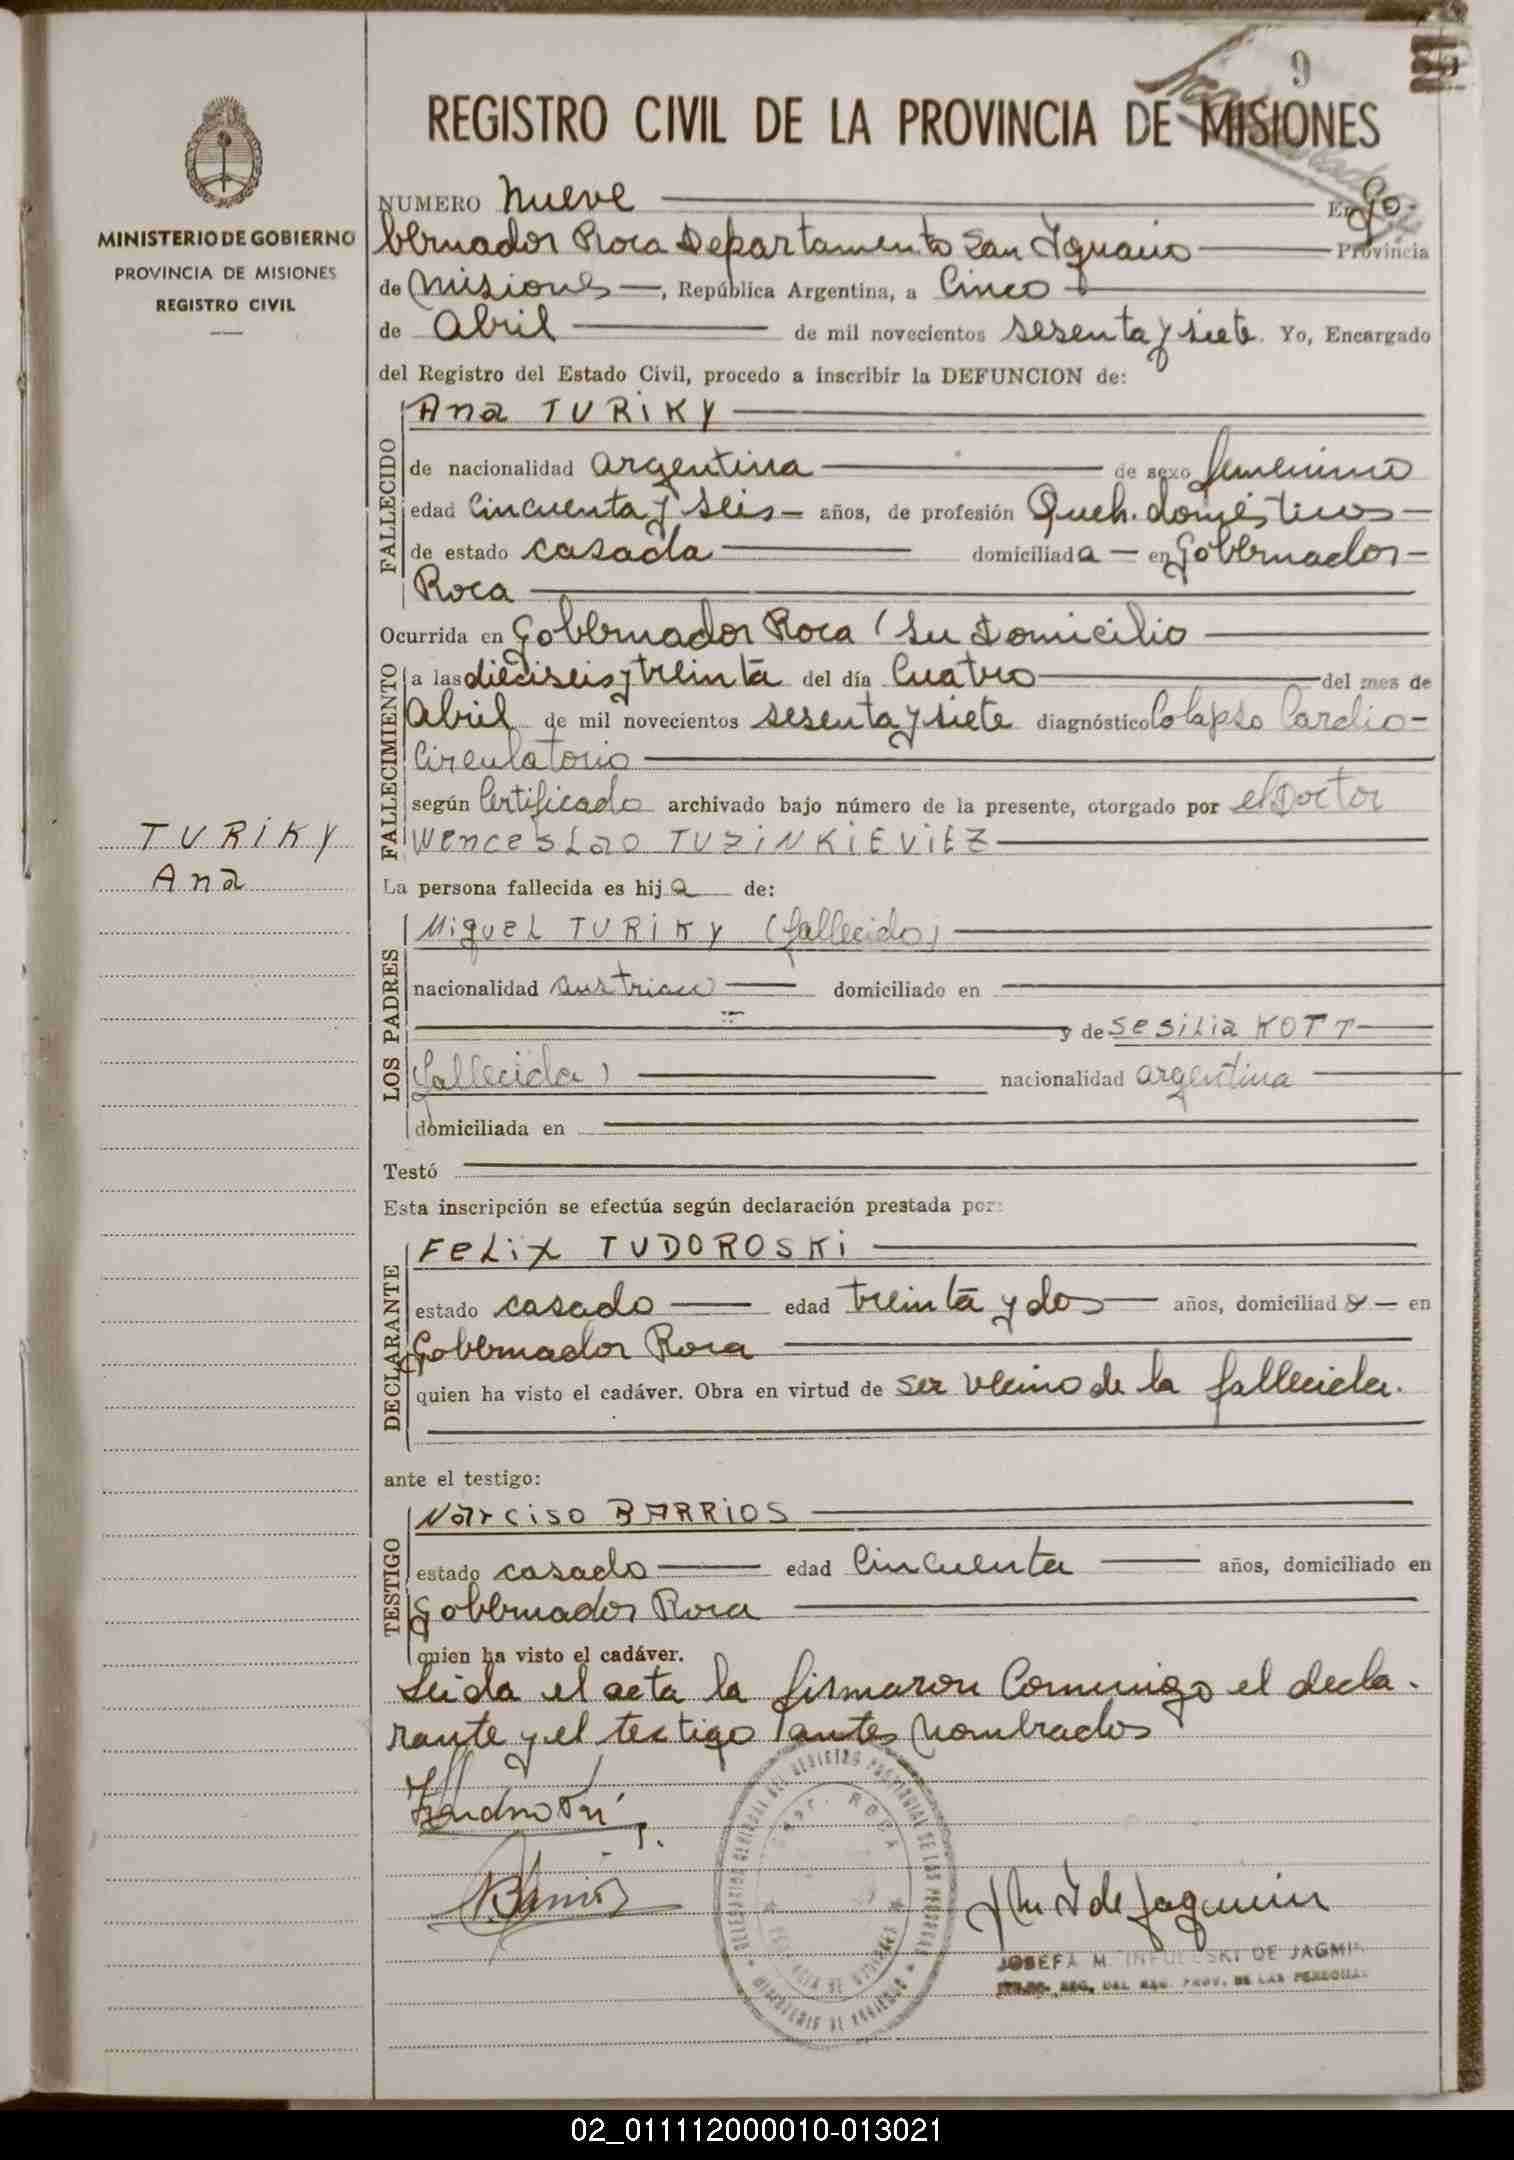 9
REGISTRO CIVIL DE LA PROVINCIA DE MISIONES
MINISTERIO DE GOBIERNO
PROVINCIA DE MISIONES
REGISTRO CIVIL
NUMERO Nueve En Go-
bernador Roca Departamento San Ignacio Provincia
de Misiones, República Argentina, a Cinco
de Abril de mil novecientos sesenta y siete. Yo, Encargado
del Registro del Estado Civil, procedo a inscribir la DEFUNCION de:
FALLECIDO
Ana TURIKY
de nacionalidad argentina de sexo femenino
edad cincuenta y seis años, de profesión Queh. domésticos
de estado casada domiciliada en Gobernador
Roca
Ocurrida en Gobernador Roca (su domicilio
FALLECIMIENTO
a las dieciseis y treinta del día Cuatro del mes de
Abril de mil novecientos sesenta y siete diagnóstico Colapso Cardio-
Circulatorio
según Certificado archivado bajo número de la presente, otorgado por el Doctor
Wenceslao TUZINKIEVIEZ
TURIKY
Ana
La persona fallecida es hija de:
LOS PADRES
Miguel TURIKY (fallecido)
nacionalidad austriaco domiciliado en
y de Sesilia KOTT
(fallecida) nacionalidad argentina
domiciliada en
Testó
Esta inscripción se efectúa según declaración prestada por:
DECLARANTE
Felix TUDOROSKI
estado casado edad treinta y dos años, domiciliado en
Gobernador Roca
quien ha visto el cadáver. Obra en virtud de ser vecino de la fallecida.
ante el testigo:
TESTIGO
Narciso BARRIOS
estado casado edad Cincuenta años, domiciliado en
Gobernador Roca
quien ha visto el cadáver.
Leida el acta la firmaron Conmigo el decla-
rante y el testigo antes nombrados
Barrios
de Jagmin
JOSEFA M. DE JAGMIN
REG. PROV. DE LAS PERSONAS
02_011112000010-013021